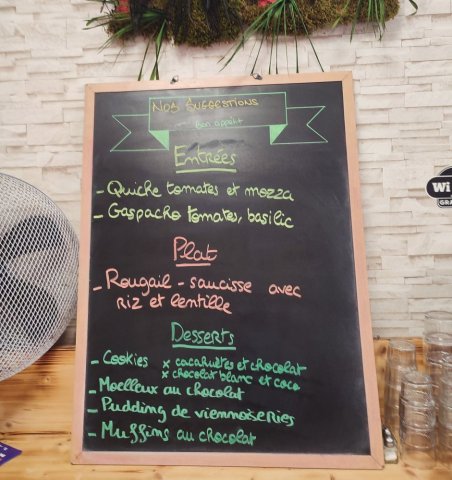 Nos suggestions
Bon appétit
Entrées
- Quiche tomates et mozza
- Gaspacho tomates, basilic
Plat
- Rougail - saucisse avec
riz et lentille
Desserts
- Cookies x cacahuètes et chocolat
x chocolat blanc et coco
- Moelleux au chocolat
- Pudding de viennoiseries
- Muffins au chocolat
Wi
GRA